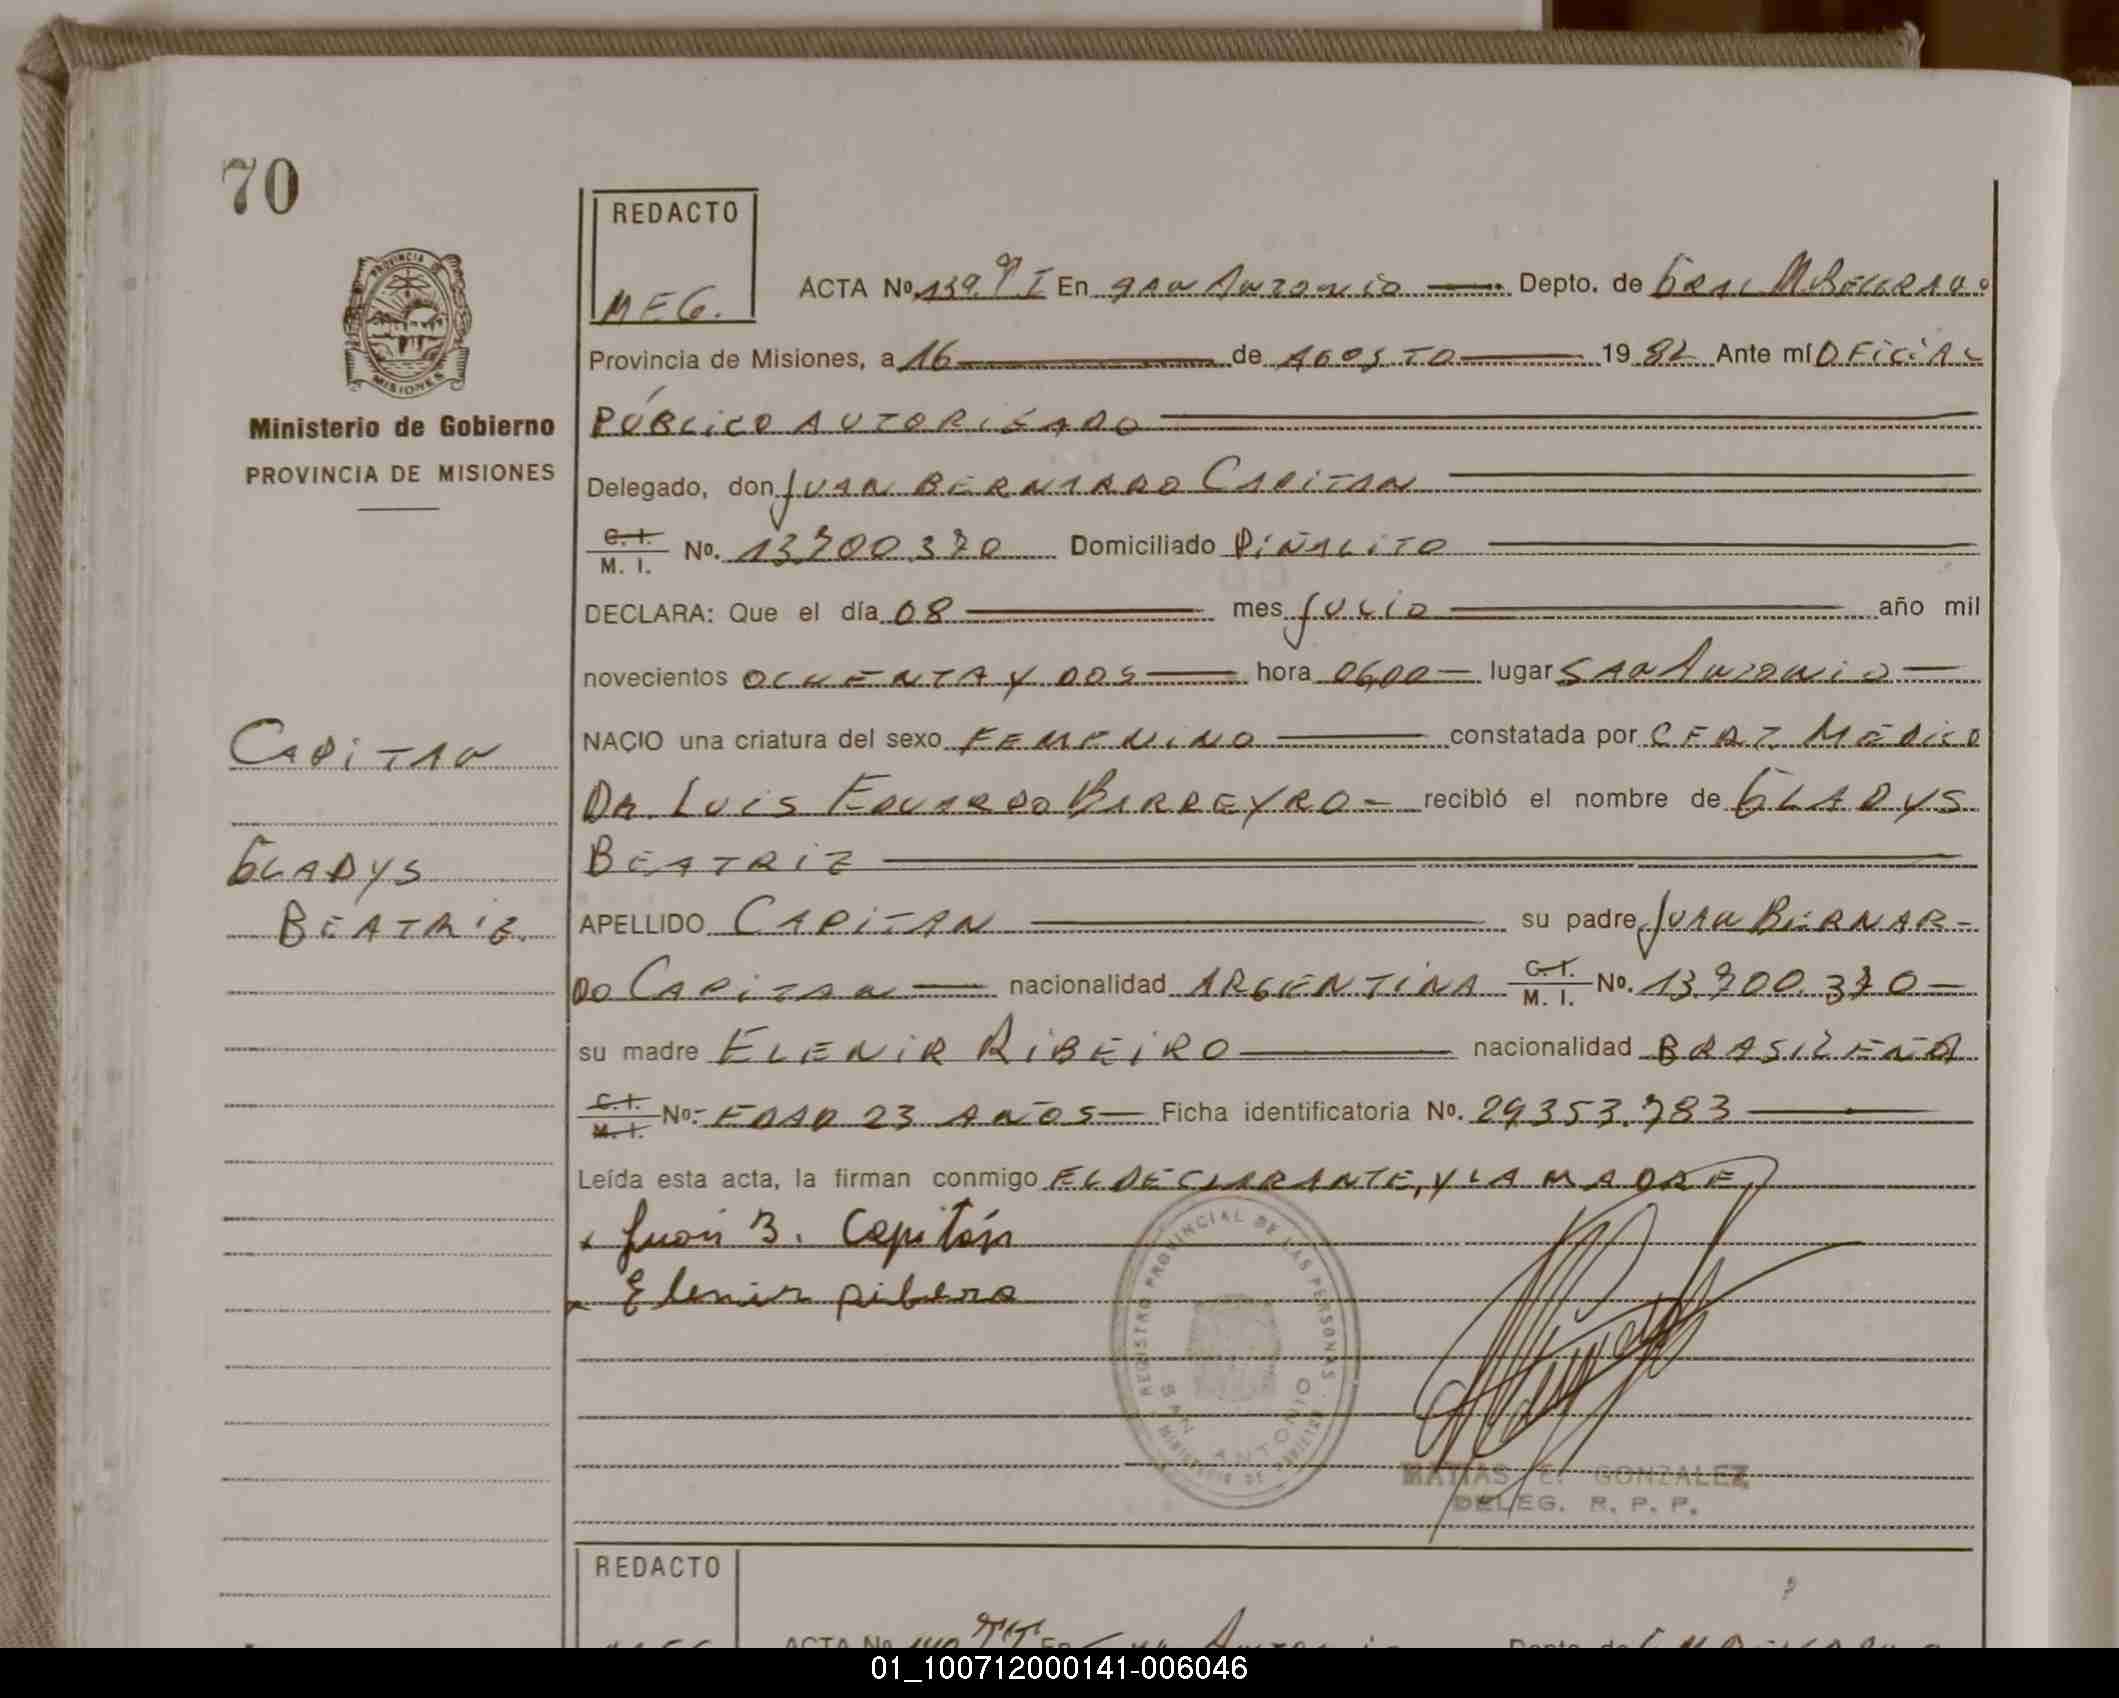 70
REDACTO
MEG.
PROVINCIA DE
MISIONES
Ministerio de Gobierno
PROVINCIA DE MISIONES
ACTA No. 139. TI En San Antonio Depto. de Gral M. Belgrano
Provincia de Misiones, a 16 de AGOSTO 1982 Ante mí OFICIAL
PÚBLICO AUTORIZADO
Delegado, don JUAN BERNARDO CAPITAN
C. I. M. I. No. 13.700.370 Domiciliado PIÑALITO
DECLARA: Que el día 08 mes JULIO año mil
novecientos OCHENTA Y DOS hora 06,00 lugar SAN ANTONIO
NACIO una criatura del sexo FEMENINO constatada por CERT. MÉDICO
DR. LUIS EDUARDO BARREYRO recibió el nombre de GLADYS
BEATRIZ
APELLIDO CAPITAN su padre JUAN BERNAR-
DO CAPITAN nacionalidad ARGENTINA C. I. M. I. No. 13.700.370
su madre ELENIR RIBEIRO nacionalidad BRASILEÑA
C. I. M. I. No. EDAD 23 AÑOS Ficha identificatoria No. 29353.783
Leída esta acta, la firman conmigo EL DECLARANTE, Y LA MADRE,
x Juan B. Capitán
x Elenir ribera
CAPITAN
GLADYS
BEATRIZ.
REGISTRO PROVINCIAL DE LAS PERSONAS
SAN ANTONIO
MINISTERIO DE
MATIAS E. GONZALEZ
DELEG. R. P. P.
REDACTO
ACTA No. 140 En San Antonio Depto. de
01_100712000141-006046